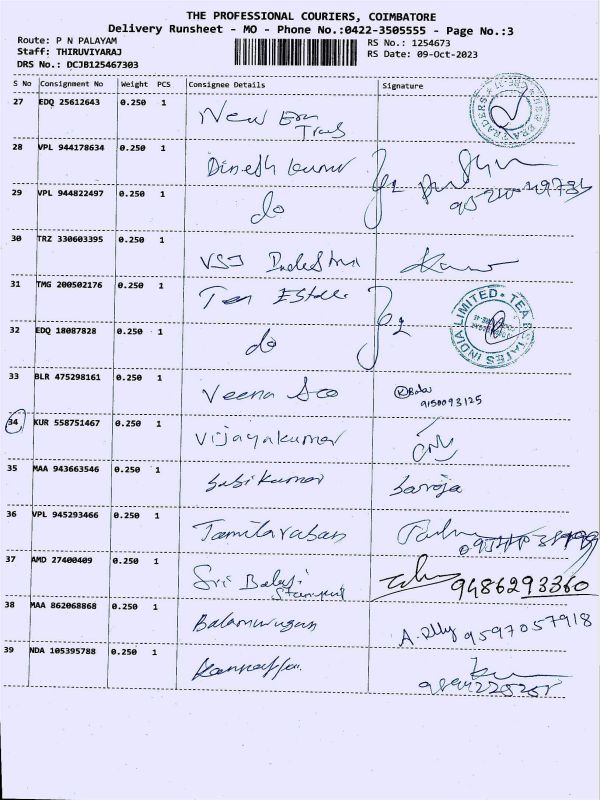 THE PROFESSIONAL COURIERS, COIMBATORE
Delivery Runsheet - MO - Phone No.:0422-3505555 - Page No.:3
Route: P N PALAYAM
Staff: THIRUVIYARAJ
DRS No.: DCJB125467303
RS No.: 1254673
RS Date: 09-Oct-2023
S No Consignment No Weight PCS Consignee Details Signature
27 EDQ 25612643 0.250 1 New Era
28 VPL 944178634 0.250 1 Dinesh kumar
29 VPL 944822497 0.250 1 do
30 TRZ 330603395 0.250 1 VSJ
31 TMG 200502176 0.250 1 Tea Estate
TEA ESTATES INDIA LIMITED
32 EDQ 18087828 0.250 1 do
33 BLR 475298161 0.250 1 Veena 9150093125
34 KUR 558751467 0.250 1 Vijayakumar
35 MAA 943663546 0.250 1 Sasikumar Saroja
36 VPL 945293466 0.250 1
37 AMD 27400409 0.250 1 Sri Balaji 9486293360
38 MAA 862068868 0.250 1 Balamurugan 9597057918
39 NDA 105395788 0.250 1 Kannappan